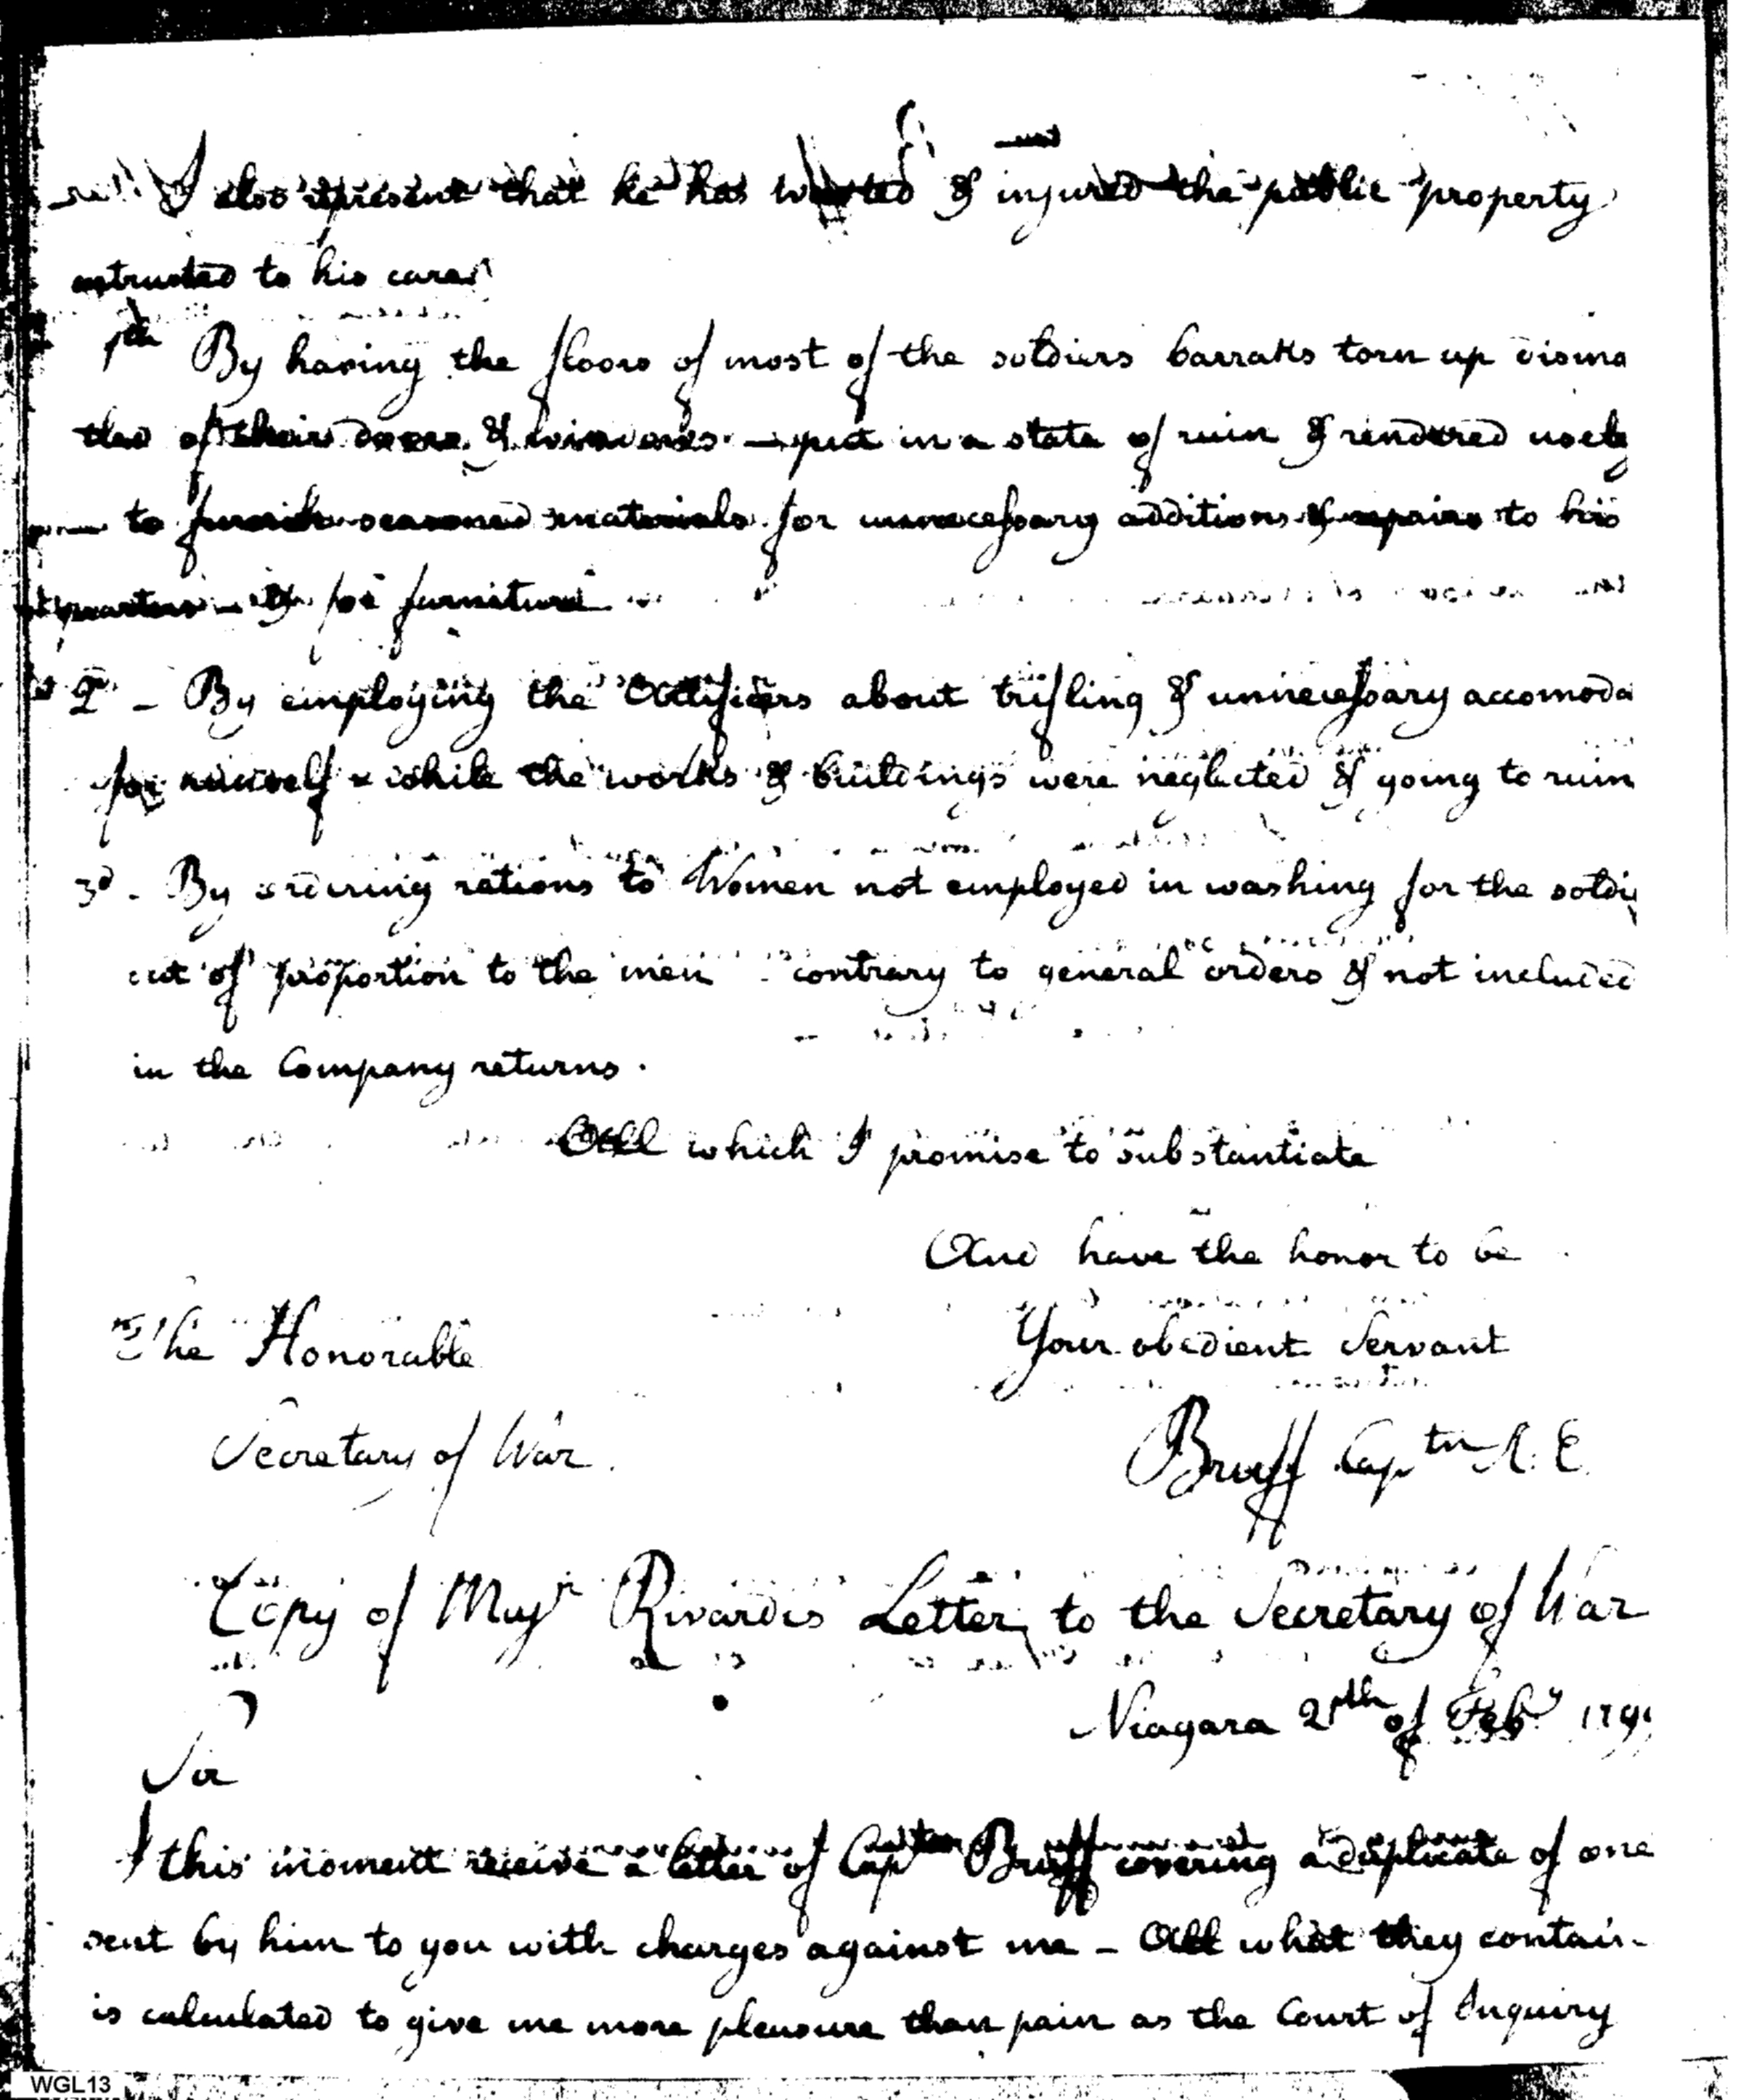 I also represent that he has wasted & injured the public property
entrusted to his care
1th By having the floors of most of the soldiers barraks torn up disma
tled of their doors & windows — put in a state of ruin & rendered usele
to furnish seasoned materials for unnecessary additions & repairs to his
quarters — & for furniture
2d - By employing the Artificers about trifling & unnecessary accomoda
for himself - while the works & buildings were neglected & going to ruin
3d - By ordering rations to Women not employed in washing for the soldi
out of proportion to the men - contrary to general orders & not included
in the Company returns.
All which I promise to substantiate
And have the honor to be
The Honorable
Your obedient Servant
Secretary of War.
Bruff Captn A. E.
Copy of Majr Rivardis Letter to the Secretary of War
Niagara of Feby 179
Sir
I this moment receive a letter of Captn Bruff covering a duplicate of one
sent by him to you with charges against me - All what they contain
is calculated to give me more pleasure than pain as the Court of Inquiry
WGL13